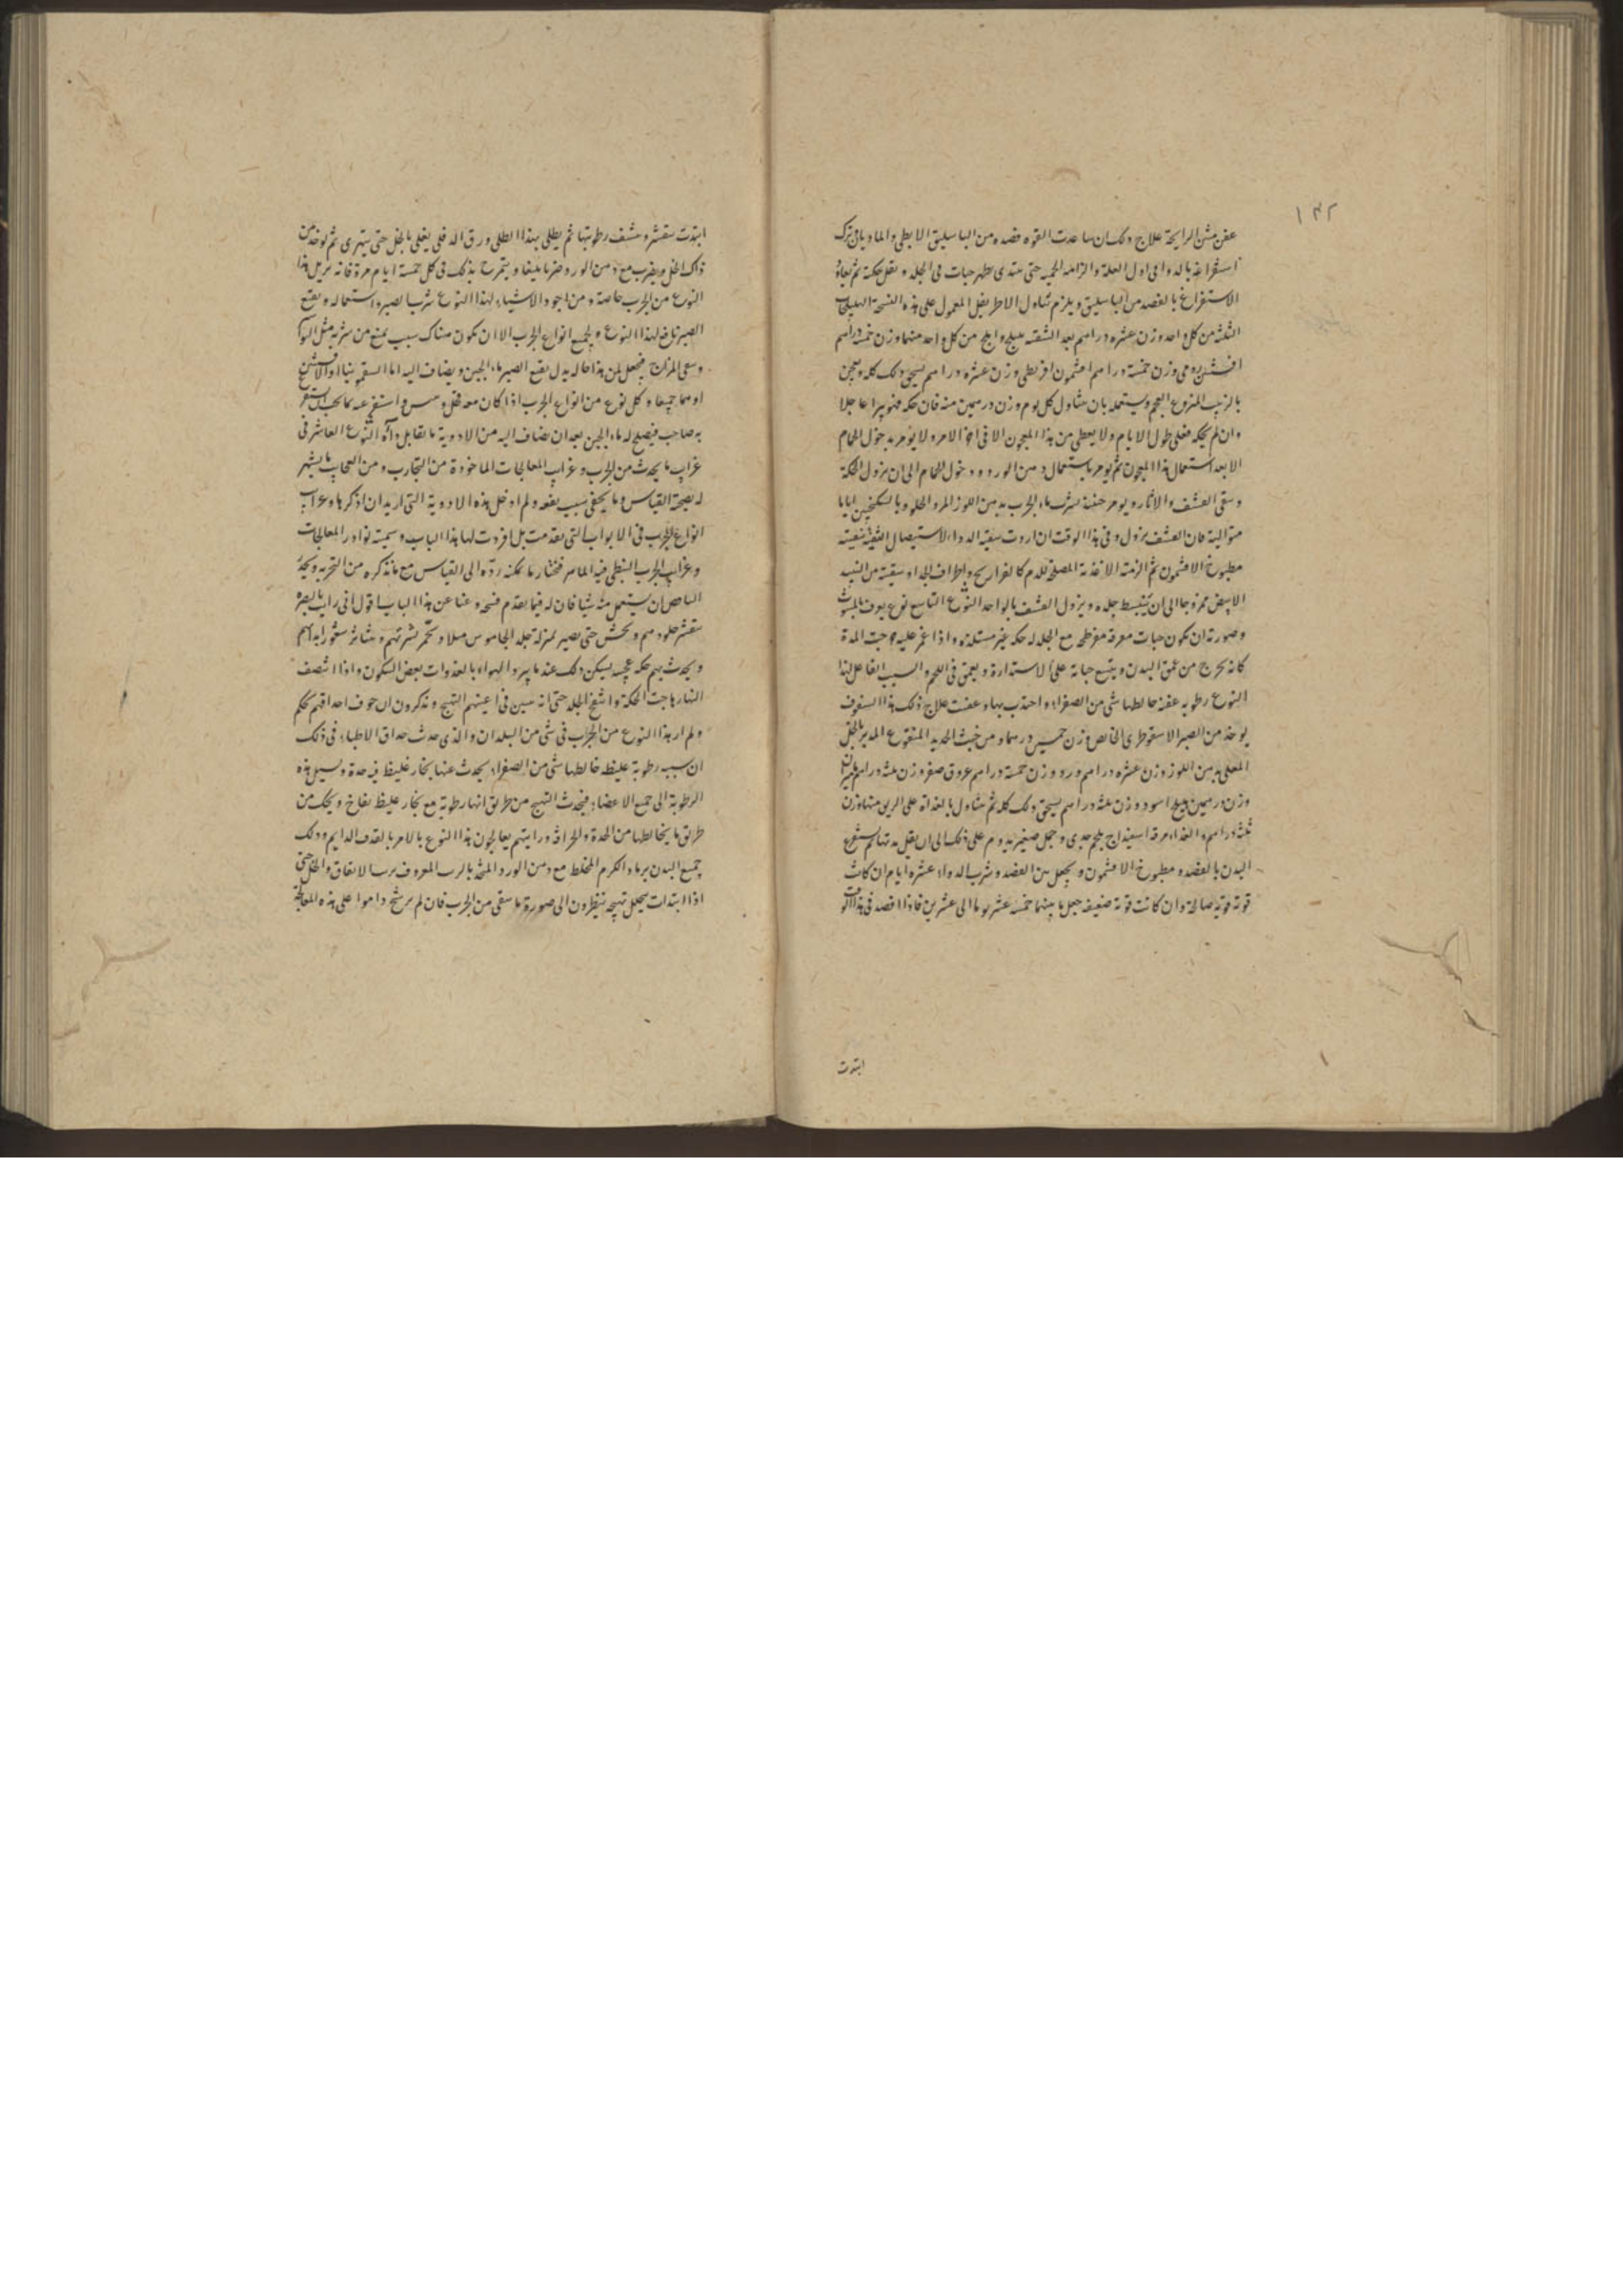 ١٣٢
عفن منتن الرايحة علاج ذلك ان ساعدت القوه فصده من الباسليق الابطي والماديان ترك
استفراغه بالدوا في اول العلة والزامه الحميه حتى يبتدى يظهر حبات في الجلد و تقل حكته ثم يعاد
الاستفراغ بالفصد من الباسليق ويلزم تناول الاطريفل المعمول على هذه النسخة الهليلجات
الثلثة من كل واحد وزن عشره دراهم بعد التنقيه بليلج واملج من كل واحد منهما وزن خمسة دراهم
افسنتين رومي وزن خمسة دراهم افتيمون اقريطي وزن عشره دراهم يسحق ذلك كله ويعجن
بالزبيب المنزوع العجم ويستعمله بان يتناول كل يوم وزن درهمين منه فان حكه فهو يبرا عاجلا
وان لم يحكه فعلى طول الايام ولا يعطى من هذا المعجون الا في اخر الامر ولا يؤمر بدخول الحمام
الا بعد استعمال هذا المعجون ثم يؤمر باستعمال دهن الورد ودخول الحمام الى ان يزول الحكة
وبقى القشف والاثار ويومر حينئذ بشرب ماء الجبن بدهن اللوز المر والحلو وبالسكنجبين اياما
متوالية فان القشف يزول وفي هذا الوقت ان اردت سقيه الدواء لاستيصال التنقيه سقيته
مطبوخ الافتيمون ثم الزمته الاغذية المصلحة للدم كالفراريج واطراف الجداء وسقيته من النبيذ
الابيض ممزوجا الى ان ينبسط جلده ويزول القشف بالواحد النوع التاسع نوع يعرف بالمبثوث
وصورته ان يكون حبات معرقه مفرطحه مع الجلد له حكه غير مستلذه واذا غمز عليه خرجت المدة
كانه يخرج من عمق البدن ويتسع حباته على الاستدارة ويعمق في اللحم والسبب الفاعل لهذا
النوع رطوبه عفنه خالطها شى من الصفراء واحتدب بها وعفنت علاج ذلك هذا السفوف
يوخذ من الصبر الاسقوطرى الخالص وزن خمسين درهما ومن خبث الحديد المنقوع المدبر بالخل
المقلى بدهن اللوز وزن عشره دراهم ورد وزن خمسة دراهم عروق صفر وزن ثلثة دراهم
وزن درهمين هليلج اسود وزن ثلثه دراهم يسحق ذلك كله ثم يتناول بالغداة على الريق منها وزن
ثلثة دراهم والغداء مرقة اسفيداج بلحم جدى وحمل صغير يدوم على ذلك الى ان يقل مدتها ثم يستفرغ
البدن بالفصد ومطبوخ الافتيمون ويجعل بين الفصد وشرب الدواء عشرة ايام ان كانت
قوته قوية صالحة وان كانت قوته ضعيفه جعل ما بينهما خمسة عشر يوما الى عشرين فاذا افصد في هذا الوقت
ابتدت
ابتدت تتقشر وتنشف رطوبتها ثم يطلى بهذا الطلى ورق الدفلى يغلى بالخل حتى يتهرى ثم يوخذ من
ذاك الخل ويضرب مع دهن الورد ضربا بليغا ويتمرخ بذلك في كل خمسة ايام مرة فانه يزيل هذا
النوع من الجرب خاصة ومن اجود الاشياء لهذا النوع شرب الصبر واستعماله ونقيع
الصبر نافع لهذا النوع ولجميع انواع الجرب الا ان يكون هناك سبب يمنع من شربه مثل البواسير
وسقى المزاج فيجعل لمن هذا حاله بدل نقيع الصبر ماء الجبن ويضاف اليه اما السقمونيا او الافسنتين
او هما جميعا وكل نوع من انواع الجرب اذا كان معه قحل ويبس واستفرغته بما يجب ان يستفرغ
به صاحبه فيصلح له ماء الجبن بعد ان يضاف اليه من الادوية ما يقابل داؤه النوع العاشر في
غرايب ما يحدث من الجرب وغرايب المعالجات الماخوذة من التجارب ومن العجايب ما يشهر
له بصحة القياس وما يخفى سبب نفعه ولم ادخل هذه الادوية التى اريد ان اذكرها وغرايب
انواع الجرب في الابواب التى تقدمت بل افردت لها هذا الباب وسميته نوادر المعالجات
وغرايب الجرب لينظر فيه الماهر فيختار ما يمكنه رده الى القياس مع ما نذكره من التجربه ويحذر
الناقص ان يستعمل منه شيا فان له فيما تقدم فسحه وغنا عن هذا الباب اقول انى رايت بالبصرة
تتقشر جلودهم وتخشن حتى يصير بمنزلة جلد الجاموس مثلا وتحمر بشرتهم ويتناثر شعور ابدانهم
ويحدث بهم حكه عجيبه يسكن ذلك عند ما يبرد الهواء بالغدوات بعض السكون واذا انتصف
النهار هاجت الحكة وانتفخ الجلد حتى انه يتبين في اعينهم التهيج ويذكرون ان جوف احداقهم تحكهم
ولم ار هذا النوع من الجرب في شى من البلدان والذى حدث حذاق الاطباء في ذلك
ان سببه رطوبة غليظه خالطها شى من الصفراء يحدث عنها بخار غليظ فيه حدة وتسيل هذه
الرطوبة الى جميع الاعضاء فيحدث التهيج من طريق انها رطوبة مع بخار غليظ نفاخ ويحك من
طريق ما يخالطها من الحدة والحرافة ورايتهم يعالجون هذا النوع بالامر بالقذف الدايم ودلك
جميع البدن برماد الكرم المخلط مع دهن الورد المتخذ بالرب المعروف برب الانفاق والخل حتى
اذا ابتدات ينحل تهيجه ينظرون الى صورة ما بقى من الجرب فان لم يرشح داموا على هذه المعالجة